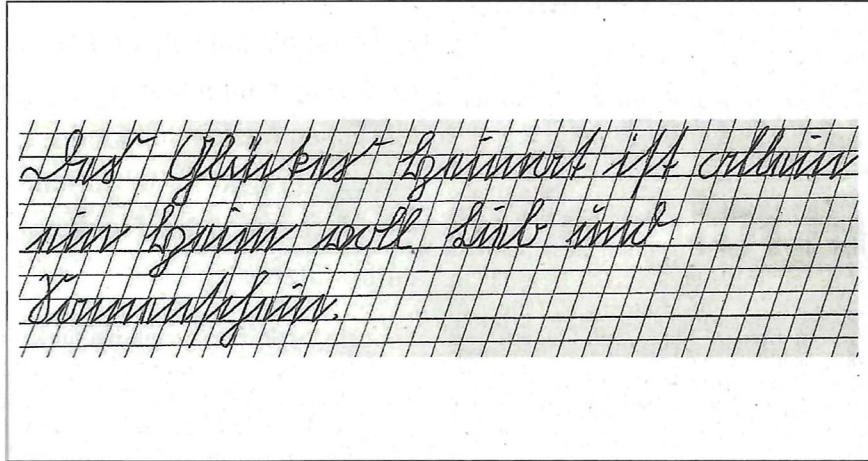 Des Glückes Heimat ist allein
ein Heim voll Lieb und
Sonnenschein.